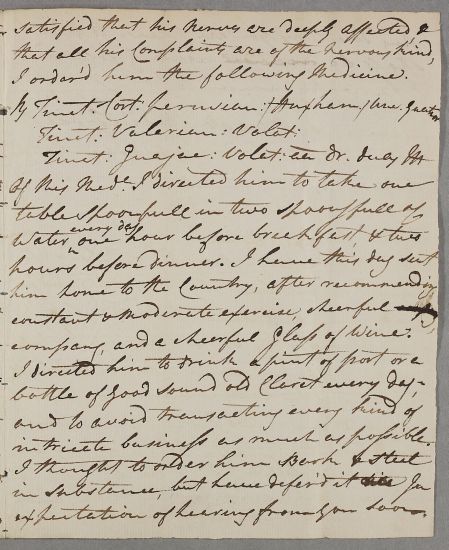 satisfied that his Nerves are deeply affected &
that all his Complaints are of the nervous kind,
I ordar'd him the following Medicine.
℞ Tinct: Cort: Peruvian: (Huxham) unc. Quatuor
Tinct: Valerian: Volat:
Tinct: Guajac: Volat: āā dr. duas M
Of this Med.e I directed him to take one
table Spoonfull in two Spoonsfull of
Water every day one hour before breekfast, & two
hours before dinner. I have this day sent
him home to the Country, after recommending
constant & moderate exercise, cheerful
company, and a cheerful Glass of Wine.
I directed him to drink a pint of port or a
bottle of good sound old Claret every day,
and to avoid transacting every kind of
intricate business as much as possible.
I thought to order him Bark & Steel
in substance, but have defer'd it In
expectation of hearing from you soon.